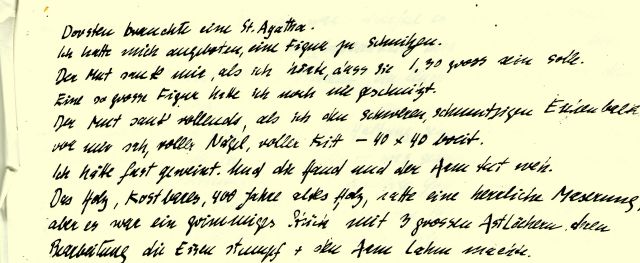 Dorsten brauchte eine St. Agatha.
Ich hatte mich angeboten, eine Figur zu schnitzen.
Der Mut sank mir, als ich hörte, dass sie 1,30 gross sein solle.
Eine so grosse Figur hatte ich noch nie geschnitzt.
Der Mut sank vollends, als ich den schweren, schmutzigen Eichenbalken
vor mir sah, voller Nägel, voller Kitt – 40 x 40 breit.
Ich hätte fast geweint. Und die Hand und der Arm tut weh.
Das Holz, kostbares, 400 Jahre altes Holz, hatte eine herrliche Maserung,
aber es war ein grimmiges Stück mit 3 grossen Astlöchern, deren
Bearbeitung die Eisen stumpf + den Arm lahm machte.